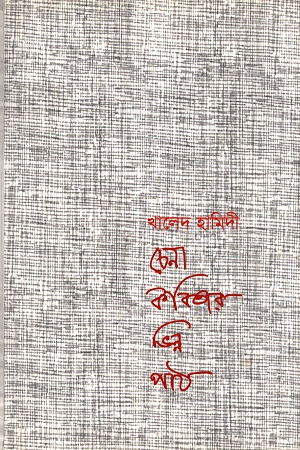 খালেদ হামিদী
চেনা
কবিতার
ভিন্ন
পাঠ